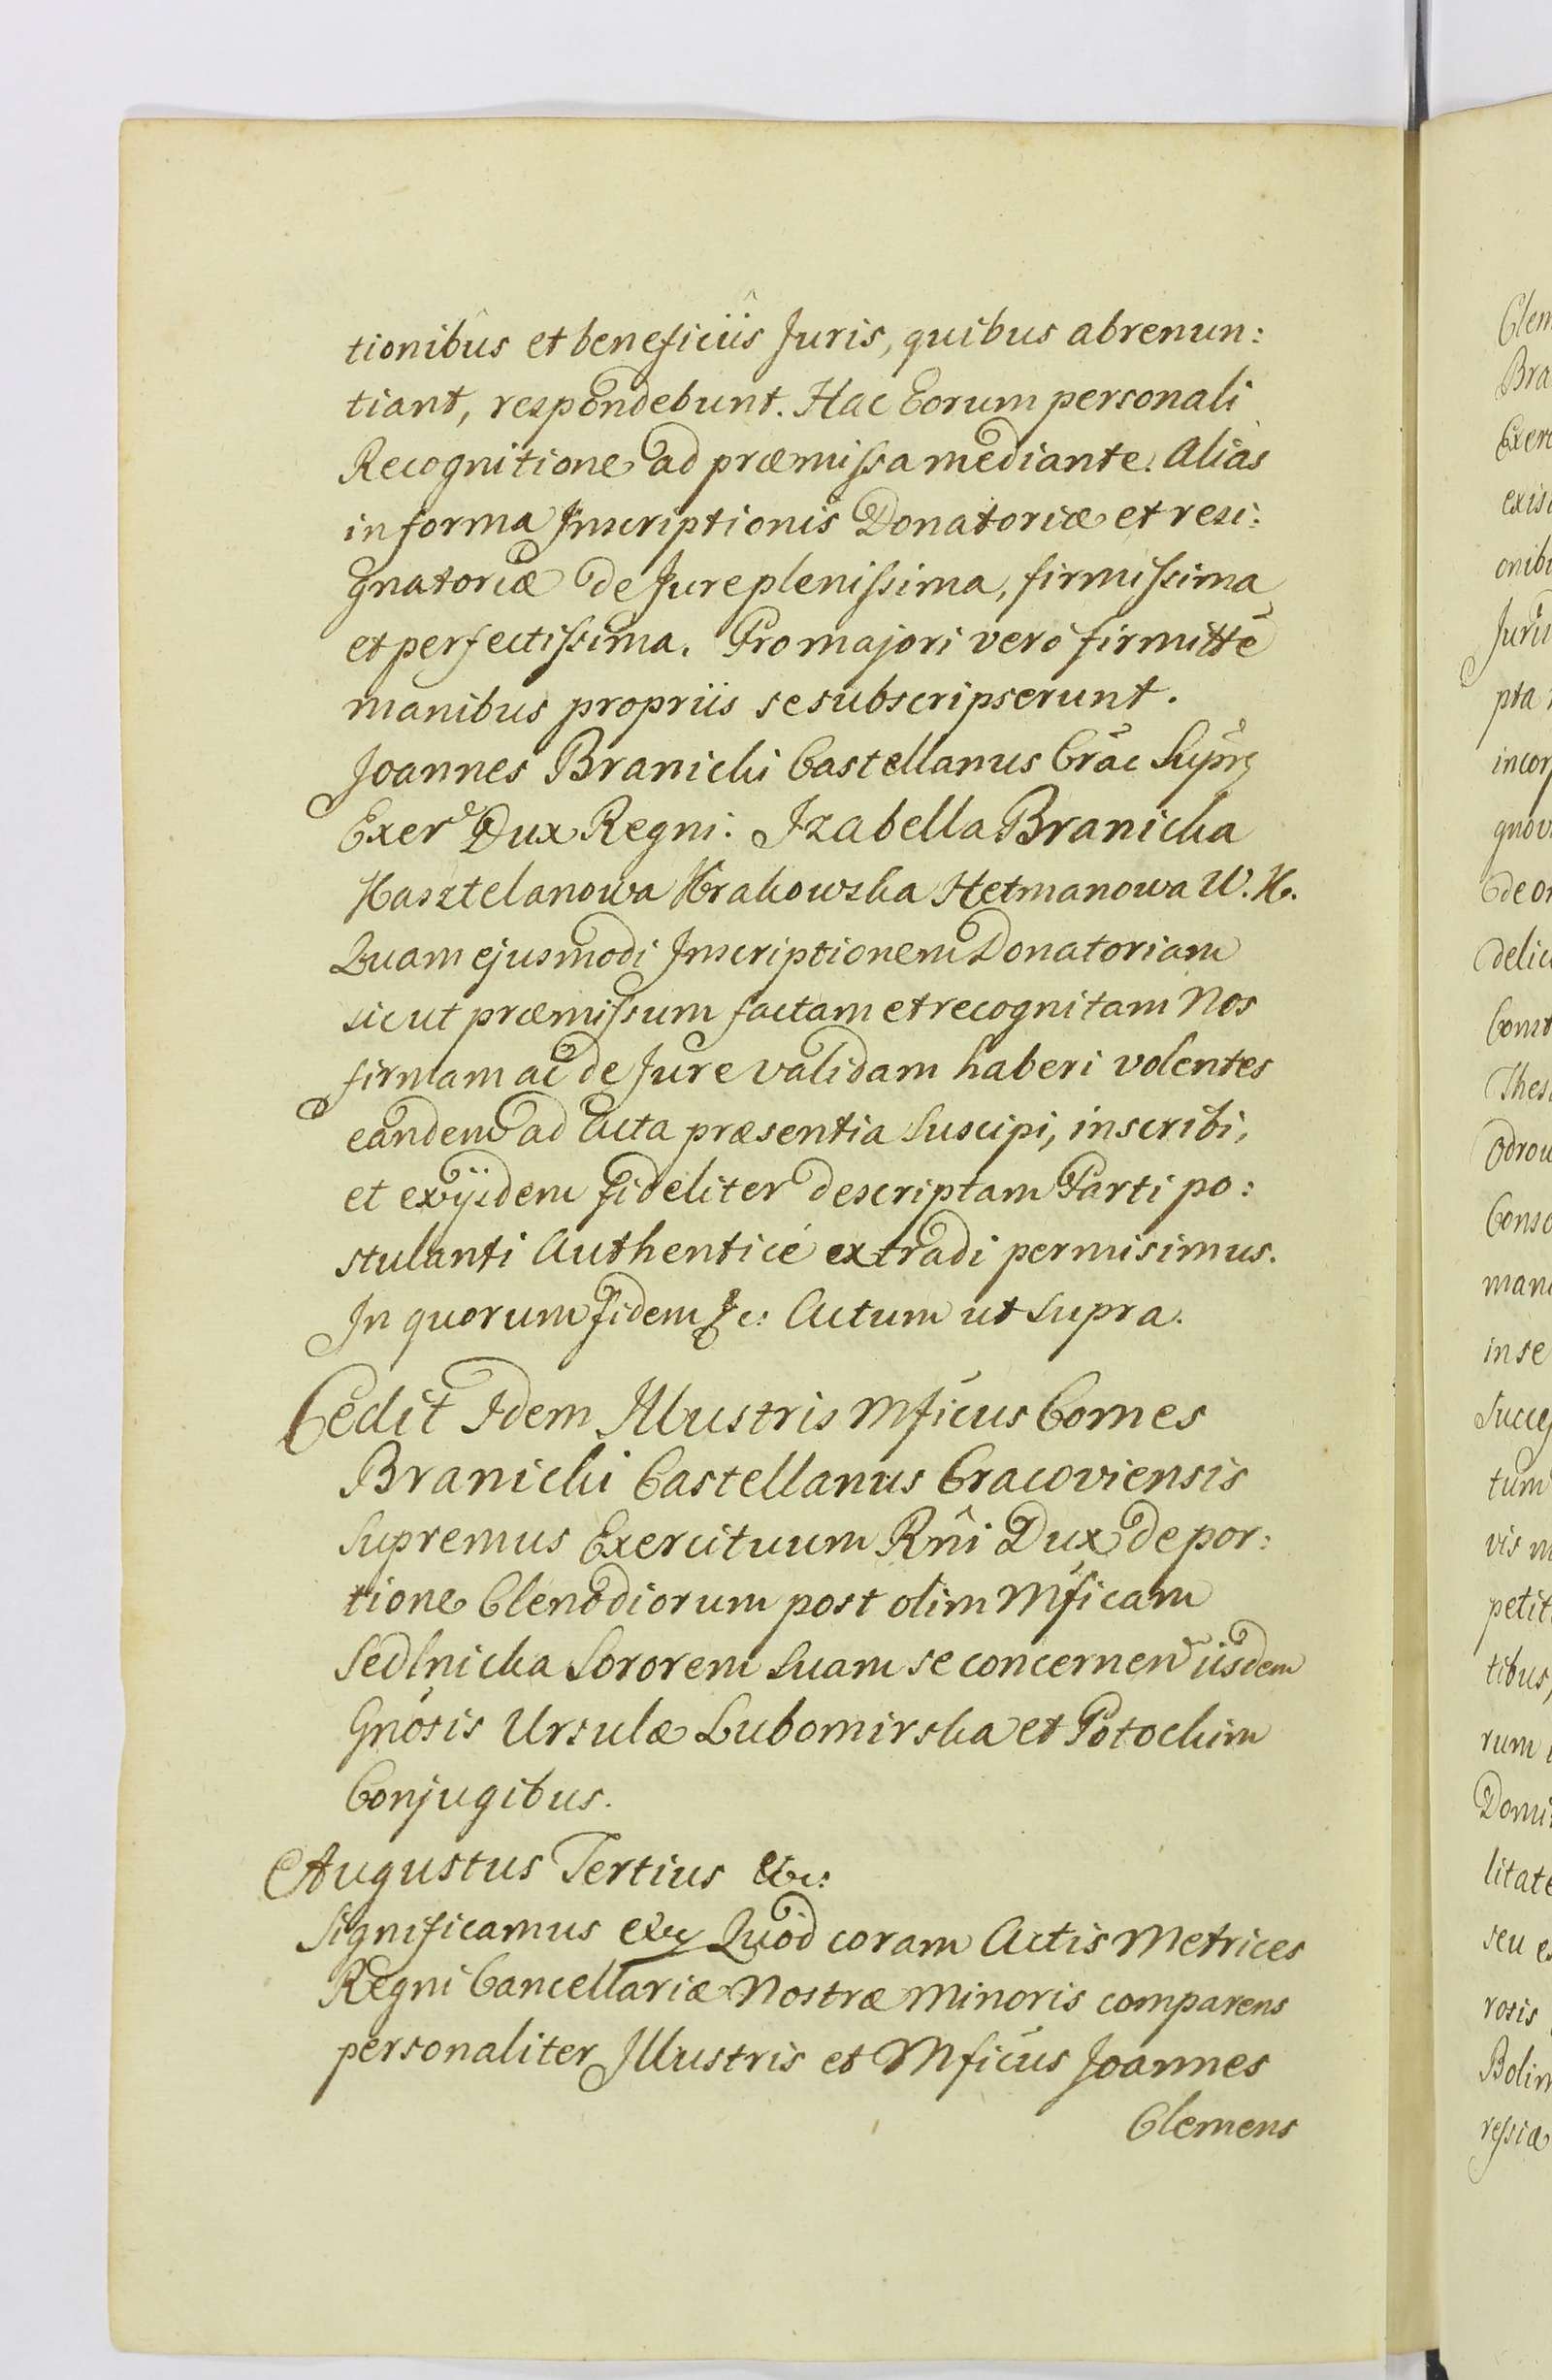 tionibus et beneficiis Juris, quibus abrenun:
tiant, respondebunt. Hac Eorum personali
Recognitione ad præmissa mediante. Aliàs
in forma Inscriptionis Donatoriæ et resi:
gnatoriæ de Jure plenissima, firmissima
et perfectissima. Pro majori verò firmitte
manibus propriis se subscripserunt.
Joannes Branicki Castellanus Crac Supr
Exer Dux Regni: Izabella Branicka
Kasztelanowa Krakowska Hetmanowa W. K.
Quam ejusmodi Inscriptionem Donatoriam
sicut præmissum factam et recognitam Nos
firmam ac de Jure validam haberi volentes
eandem ad Acta præsentia Suscipi, inscribi,
et ex ijsdem fideliter descriptam Parti po:
stulanti Authenticè extradi permisimus.
In quorum fidem &c: Actum ut Supra.
Cedit Idem Illustris Mficus Comes
Branicki Castellanus Cracoviensis
Supremus Exercituum Rñi Dux de por:
tione Clenodiorum post olim Mficam
Sedlnicka Sororem Suam se concernen iisdem
Gnosis Ursulæ Lubomirska et Potockim
Conjugibus.
Augustus Tertius &c:
Significamus &c Quod coram Actis Metrices
Regni Cancellariæ Nostræ Minoris comparens
personaliter Illustris et Mficus Joannes
Clemens
Clem
Bra
Exer
exis
onib
Juri
pta
incor
gnov
de o
delic
Const
Thes
Odrow
Conso
man
in se
Succes
tum
vis
petit
tibus,
rum
Domi
litate
seu
rosis
Bolim
ressiæ